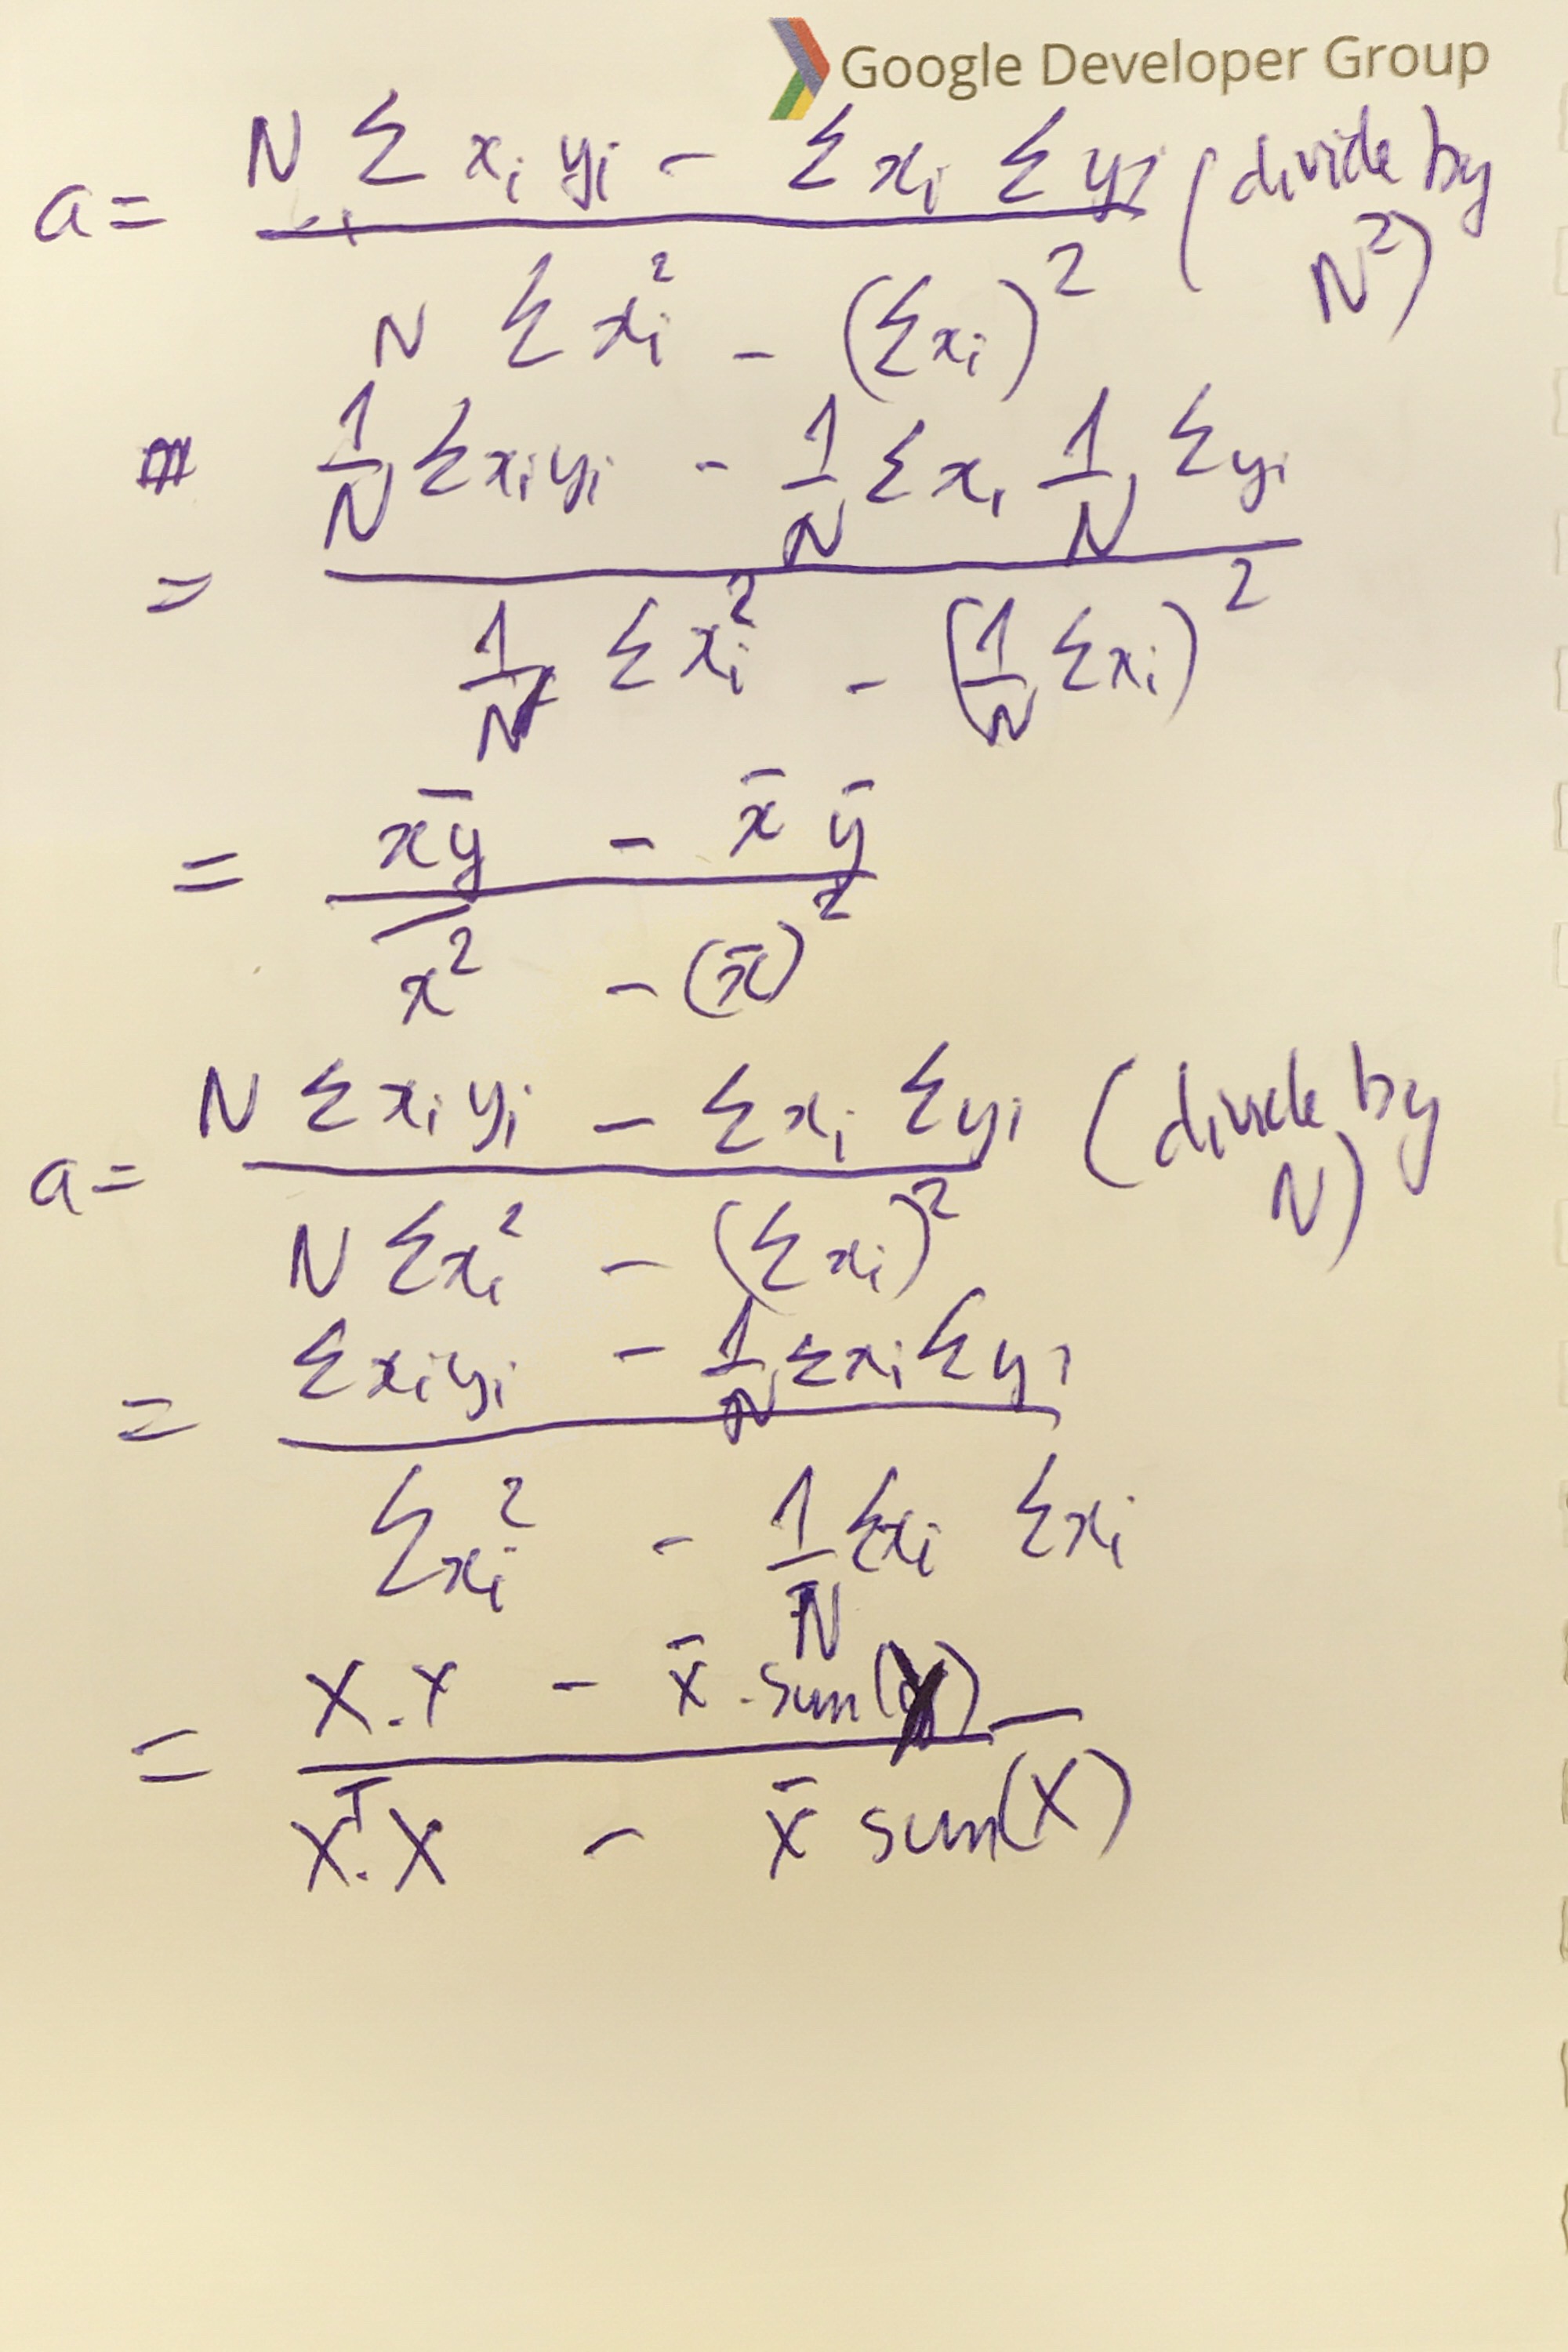 Google Developer Group
a = (N Σ xᵢ yᵢ − Σ xᵢ Σ yᵢ) / (N Σ xᵢ² − (Σ xᵢ)²) (divide by N²)
= (1/N Σ xᵢ yᵢ − 1/N Σ xᵢ 1/N Σ yᵢ) / (1/N Σ xᵢ² − (1/N Σ xᵢ)²)
= (x̅y̅ − x̄ ȳ) / (x̅²̅ − (x̄)²)
a = (N Σ xᵢ yᵢ − Σ xᵢ Σ yᵢ) / (N Σ xᵢ² − (Σ xᵢ)²) (divide by N)
= (Σ xᵢ yᵢ − 1/N Σ xᵢ Σ yᵢ) / (Σ xᵢ² − 1/N Σ xᵢ Σ xᵢ)
= (X.Y − x̄ . sum(Y)) / (Xᵀ.X − x̄ sum(X))